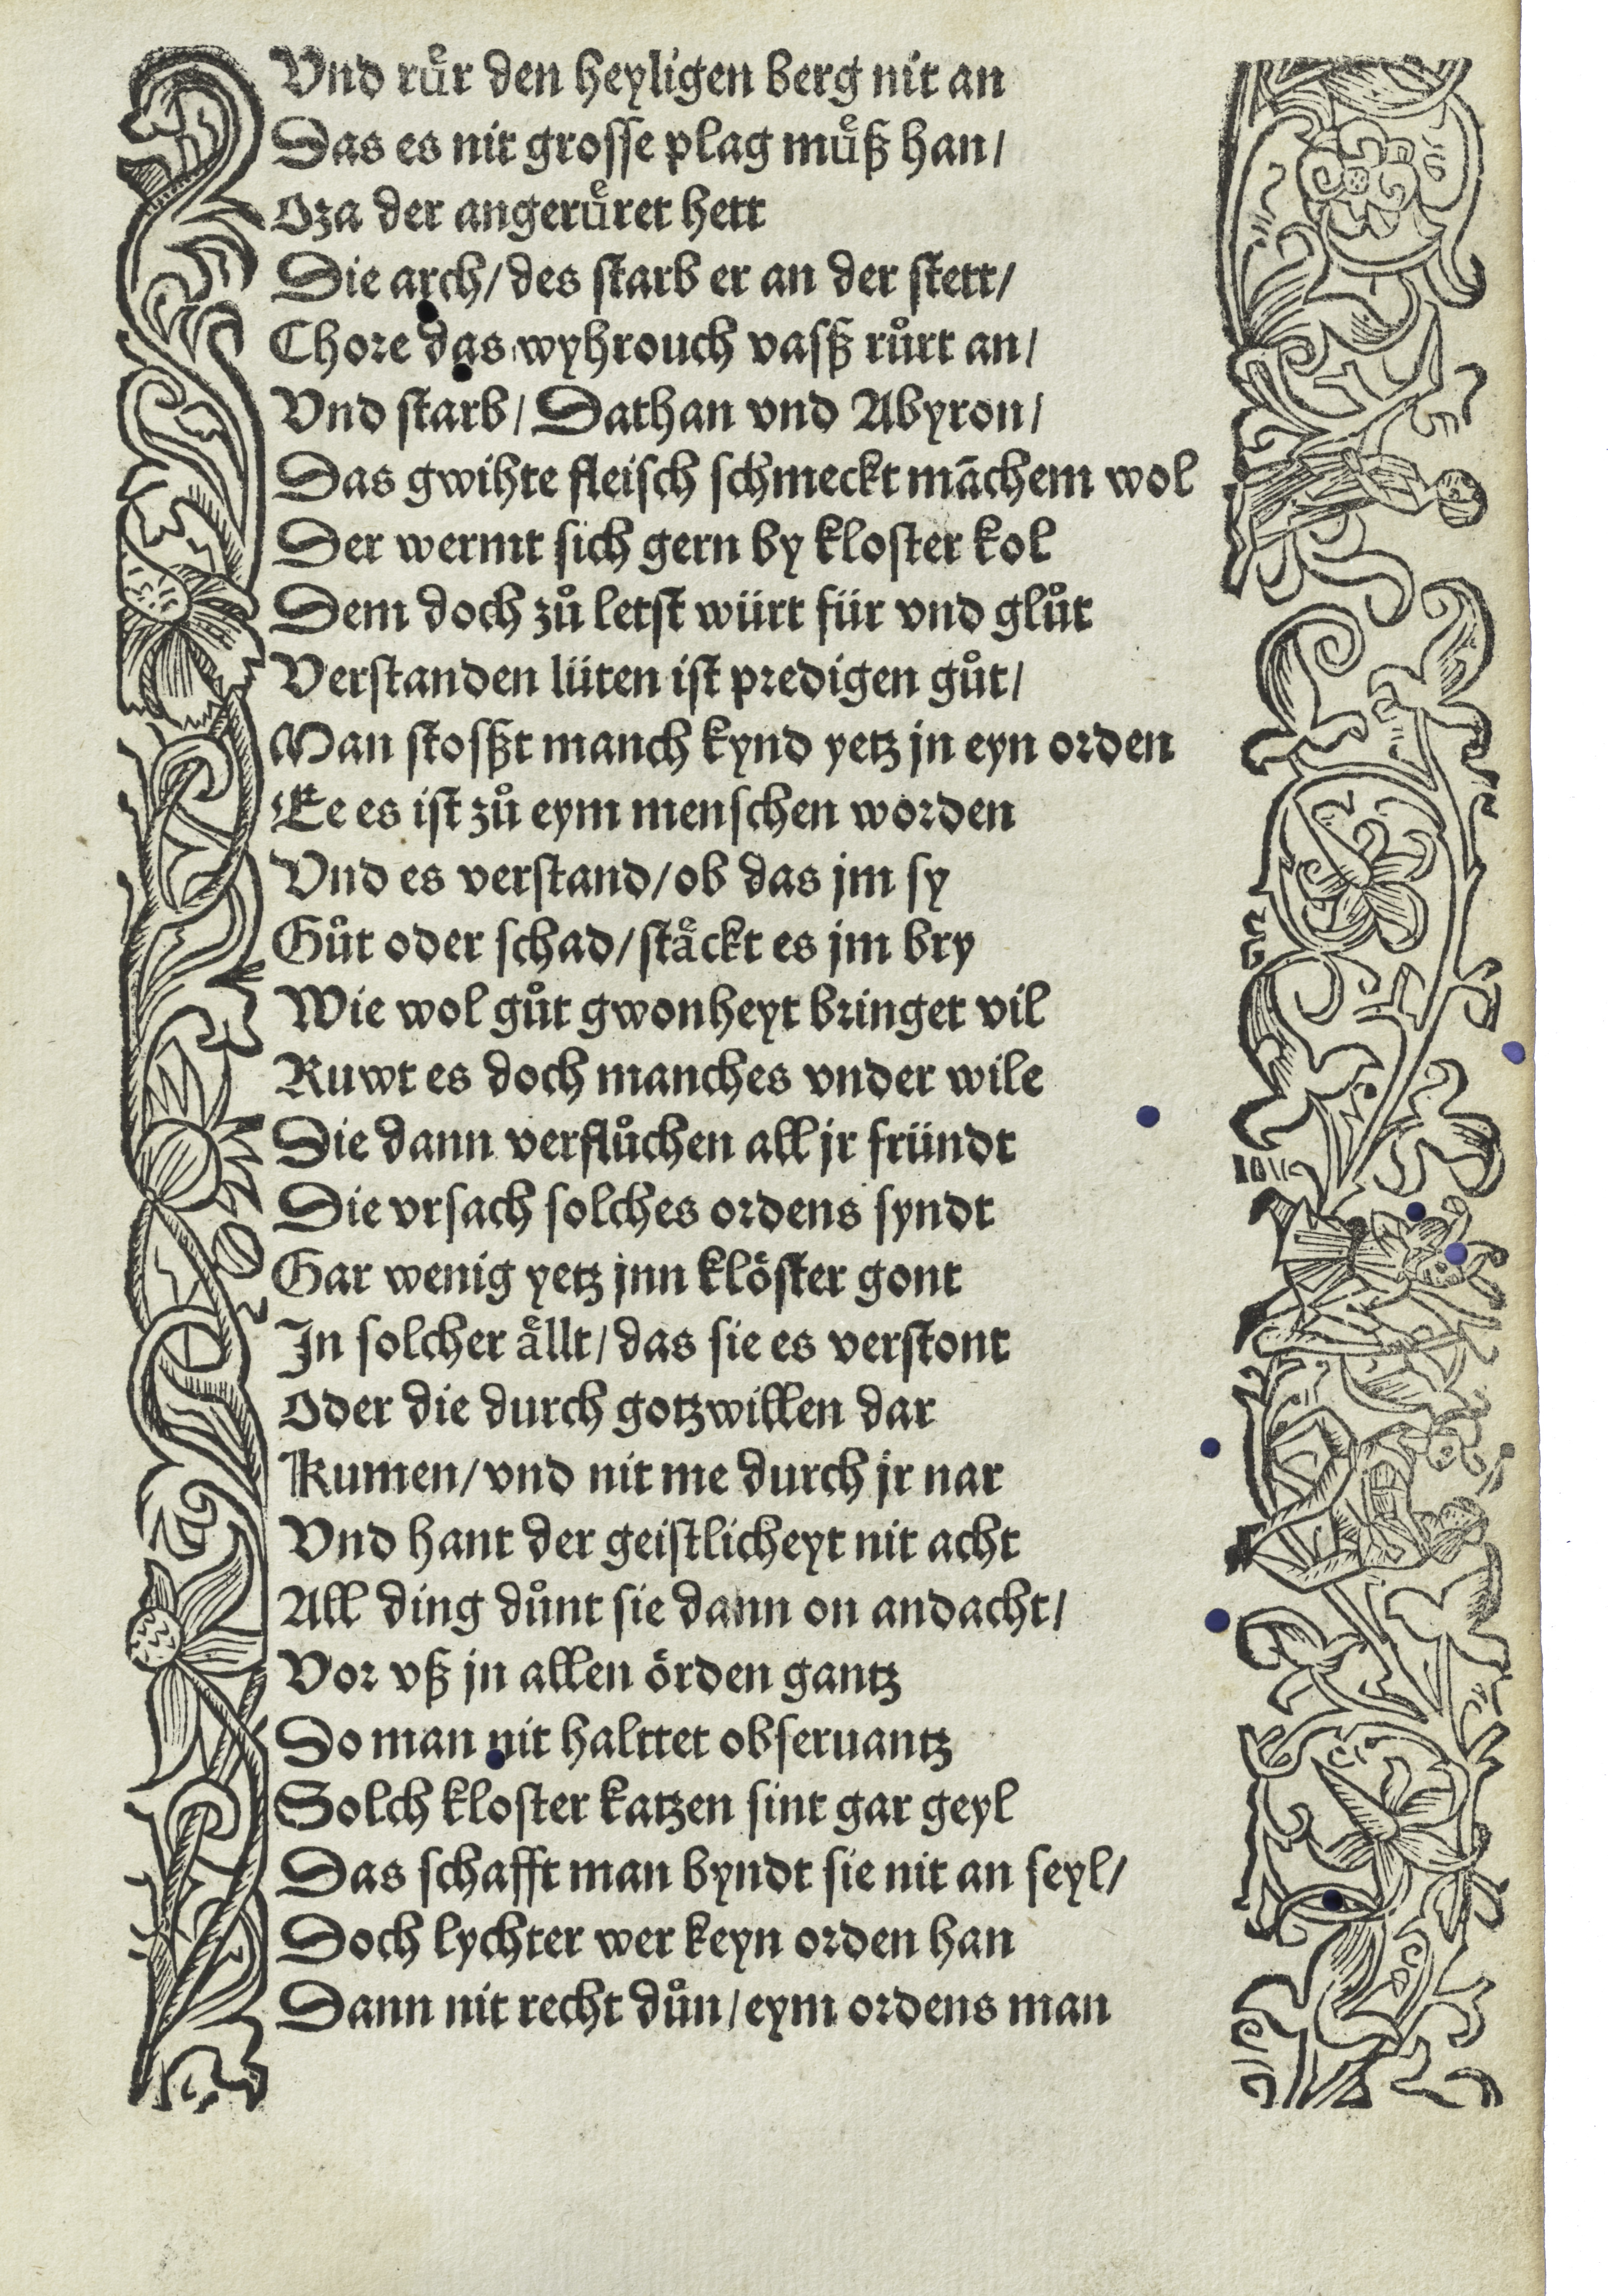 Vnd ruͤr den heyligen berg nit an
Das es nit grosse plag muͤß han/
Oza der angeruͤret hett
Die arch/ des starb er an der stett/
Chore das wyhrouch vasß ruͦrt an/
Vnd starb/ Dathan vnd Abyron/
Das gwihte fleisch schmeckt mãchem wol
Der wermt sich gern by kloster kol
Dem doch zuͦ letst würt für vnd gluͦt
Verstanden lüten ist predigen guͦt/
Man stosßt manch kynd yetz jn eyn orden
Ee es ist zuͦ eym menschen worden
Vnd es verstand/ ob das jm sy
Guͦt oder schad/ staͤckt es jm bry
Wie wol guͦt gwonheyt bringet vil
Ruwt es doch manches vnder wile
Die dann verfluͦchen all jr fründt
Die vrsach solches ordens syndt
Gar wenig yetz jnn klöster gont
In solcher aͤllt/ das sie es verstont
Oder die durch gotzwillen dar
Kumen/ vnd nit me durch jr nar
Vnd hant der geistlicheyt nit acht
All ding duͦnt sie dann on andacht/
Vor vß jn allen örden gantz
Do man nit halttet obseruantz
Solch kloster katzen sint gar geyl
Das schafft man byndt sie nit an seyl/
Doch lychter wer keyn orden han
Dann nit recht duͦn/ eym ordens man